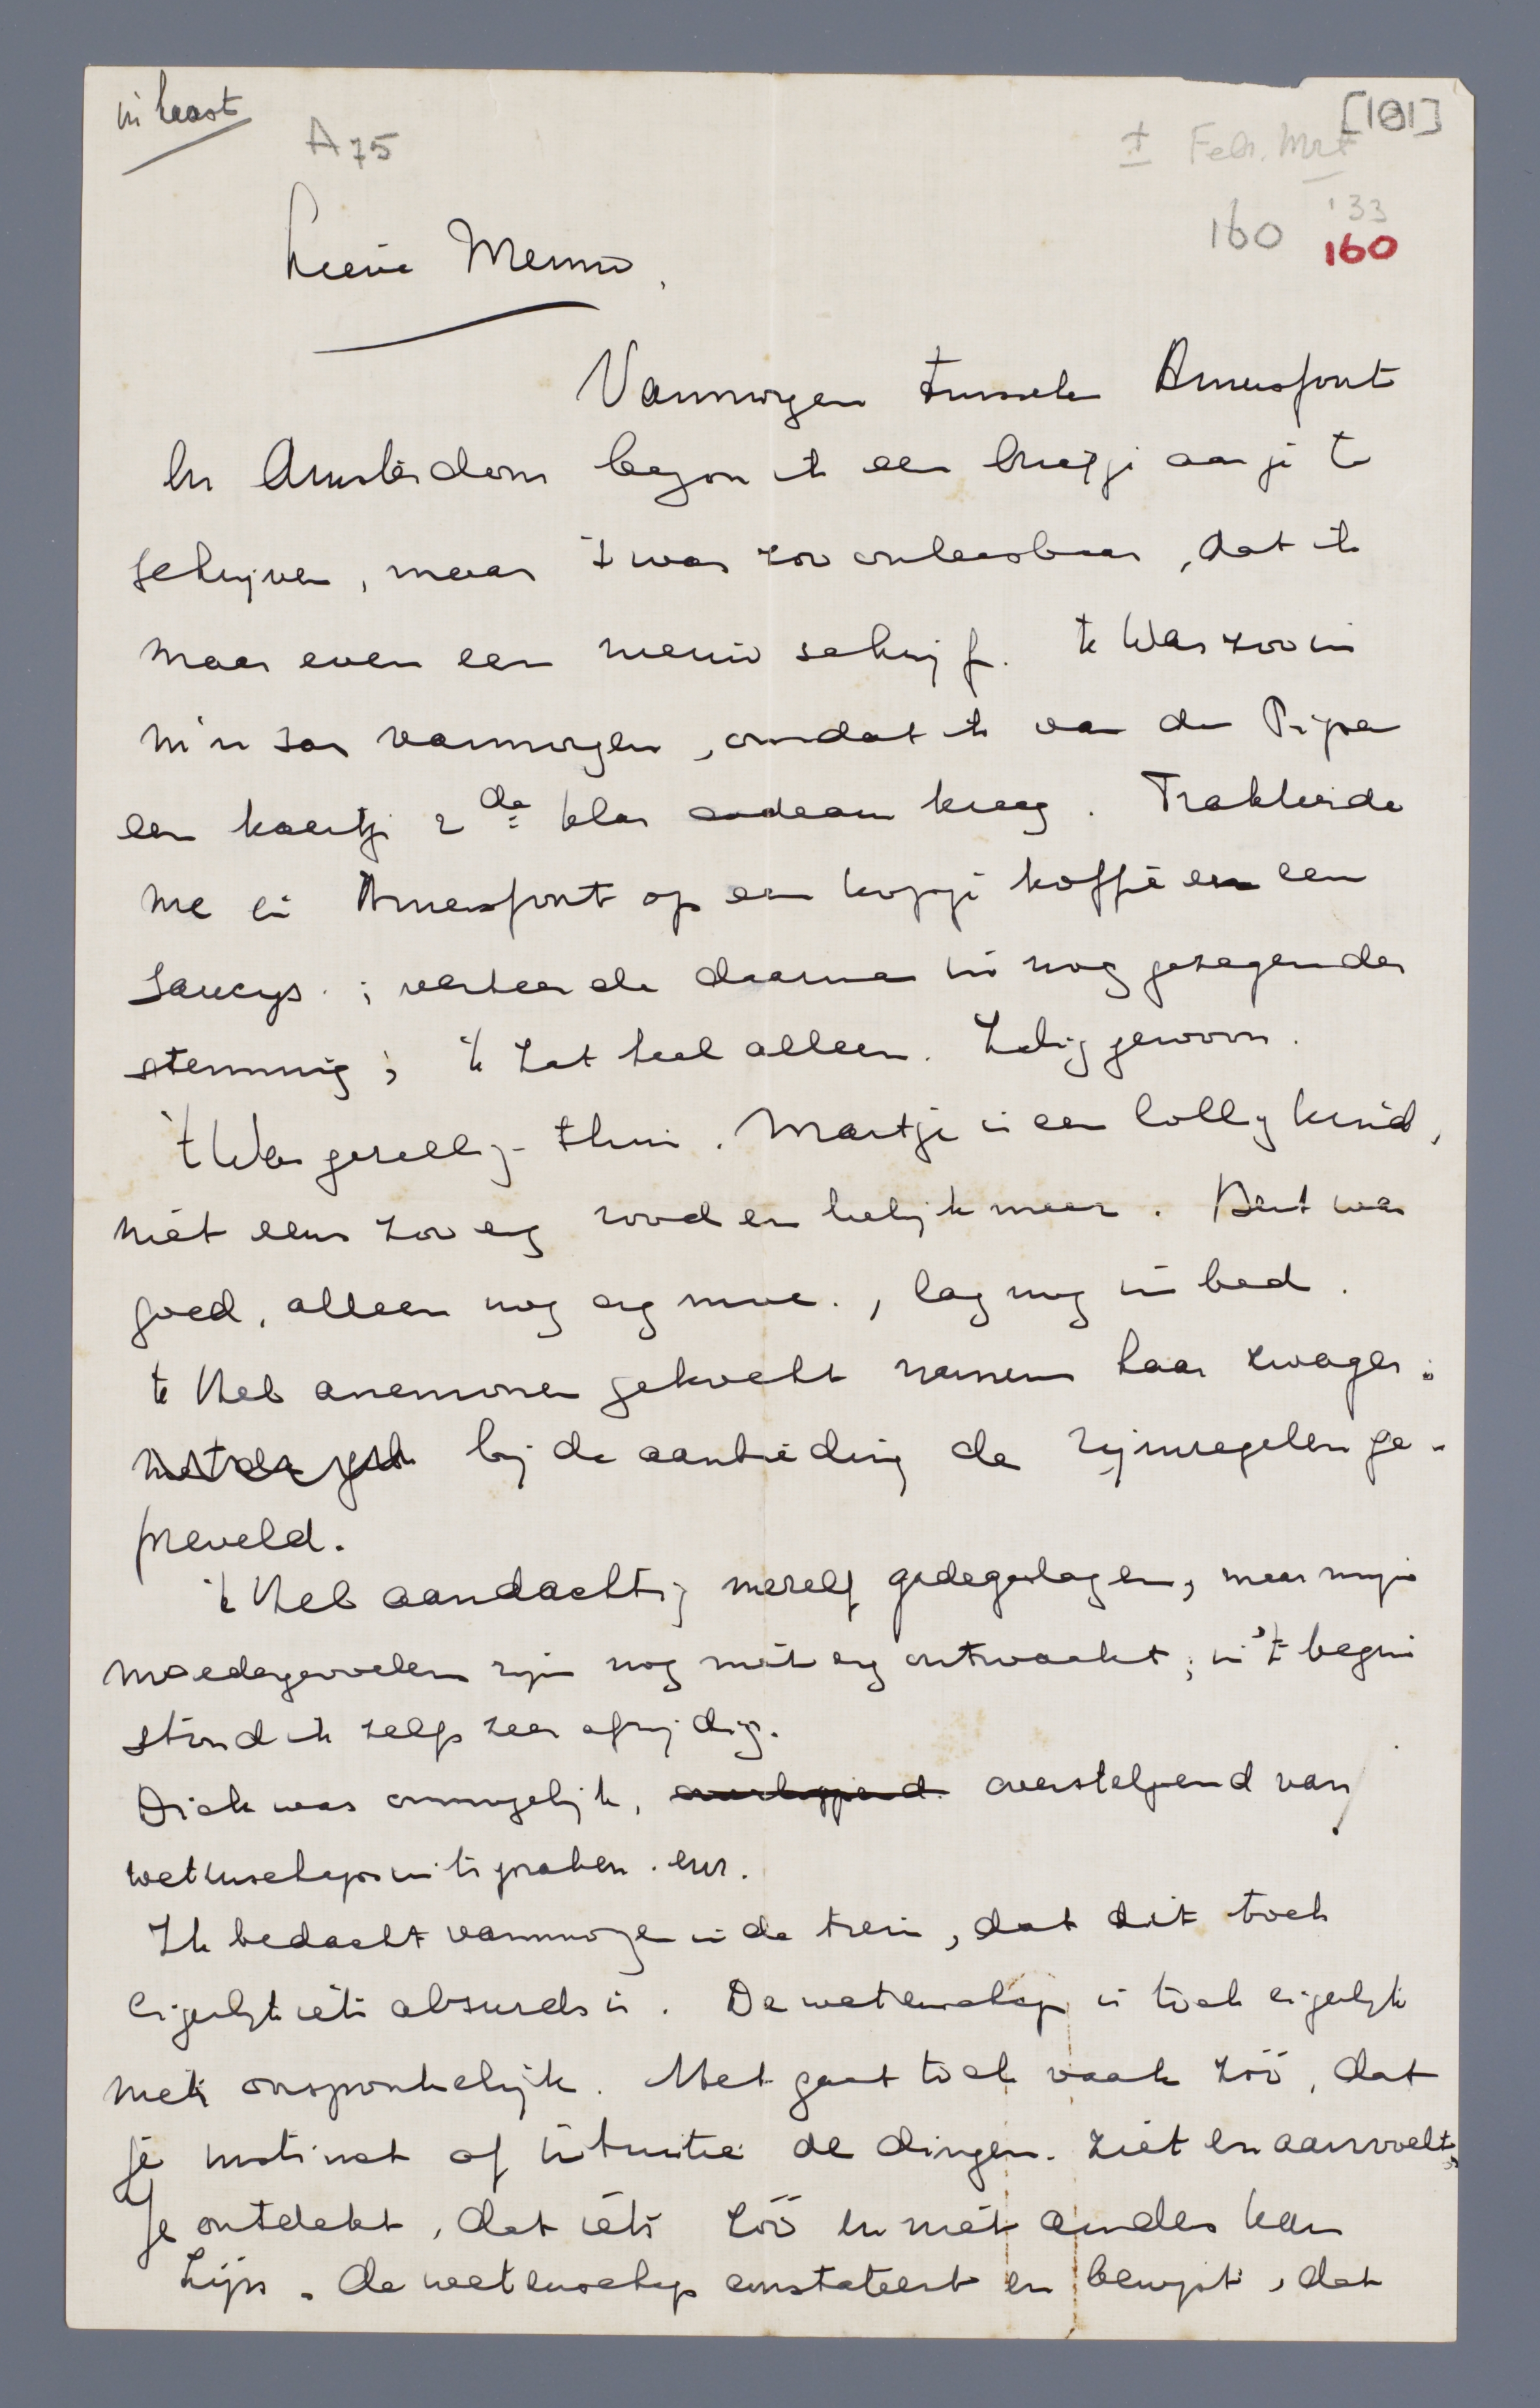 in haast
A75
[101]
± Febr. Mrt
'33
160 160
Lieve Menno,
Vanmorgen tusschen Amersfoort
en Amsterdam begon ik een briefje aan je te
schrijven, maar 't was zoo onleesbaar, dat ik
maar even een nieuw schrijf. 'k Was zoo in
m'n sas vanmorgen, omdat ik van de Pijper
een kaartje 2de klas cadeau kreeg. Trakteerde
me in Amersfoort op een kopje koffie en een
saucijs; verteerde daarna in nog gezegender
stemming; 'k zat heel alleen. Zalig gewoon.
't Was gezellig thuis. Maartje is een lollig kind,
niet eens zoo erg rood en leelijk meer. Bert was
goed, alleen nog erg moe., lag nog in bed.
'k Heb anemonen gekocht namens haar zwager;
bij de aanbieding de rijmregelen ge-
preveld.
'k Heb aandachtig mezelf gadegeslagen, maar mijn
moedergevoelens zijn nog niet erg ontwaakt; in 't begin
stond ik zelfs zeer afwijzig.
Dick was onmogelijk, overloopend overstelpend van
wetenschapsuitspraken. enz.
Ik bedacht vanmorgen in de trein, dat dit toch
eigenlijk iets absurds is. De wetenschap is toch eigenlijk
niets oorspronkelijk. Het gaat toch vaak zóó, dat
je instinct of intuitie de dingen ziet en aanvoelt,
Je ontdekt, dat iets zóó en niet anders kan
zijn. De wetenschap constateert en bewijst, dat